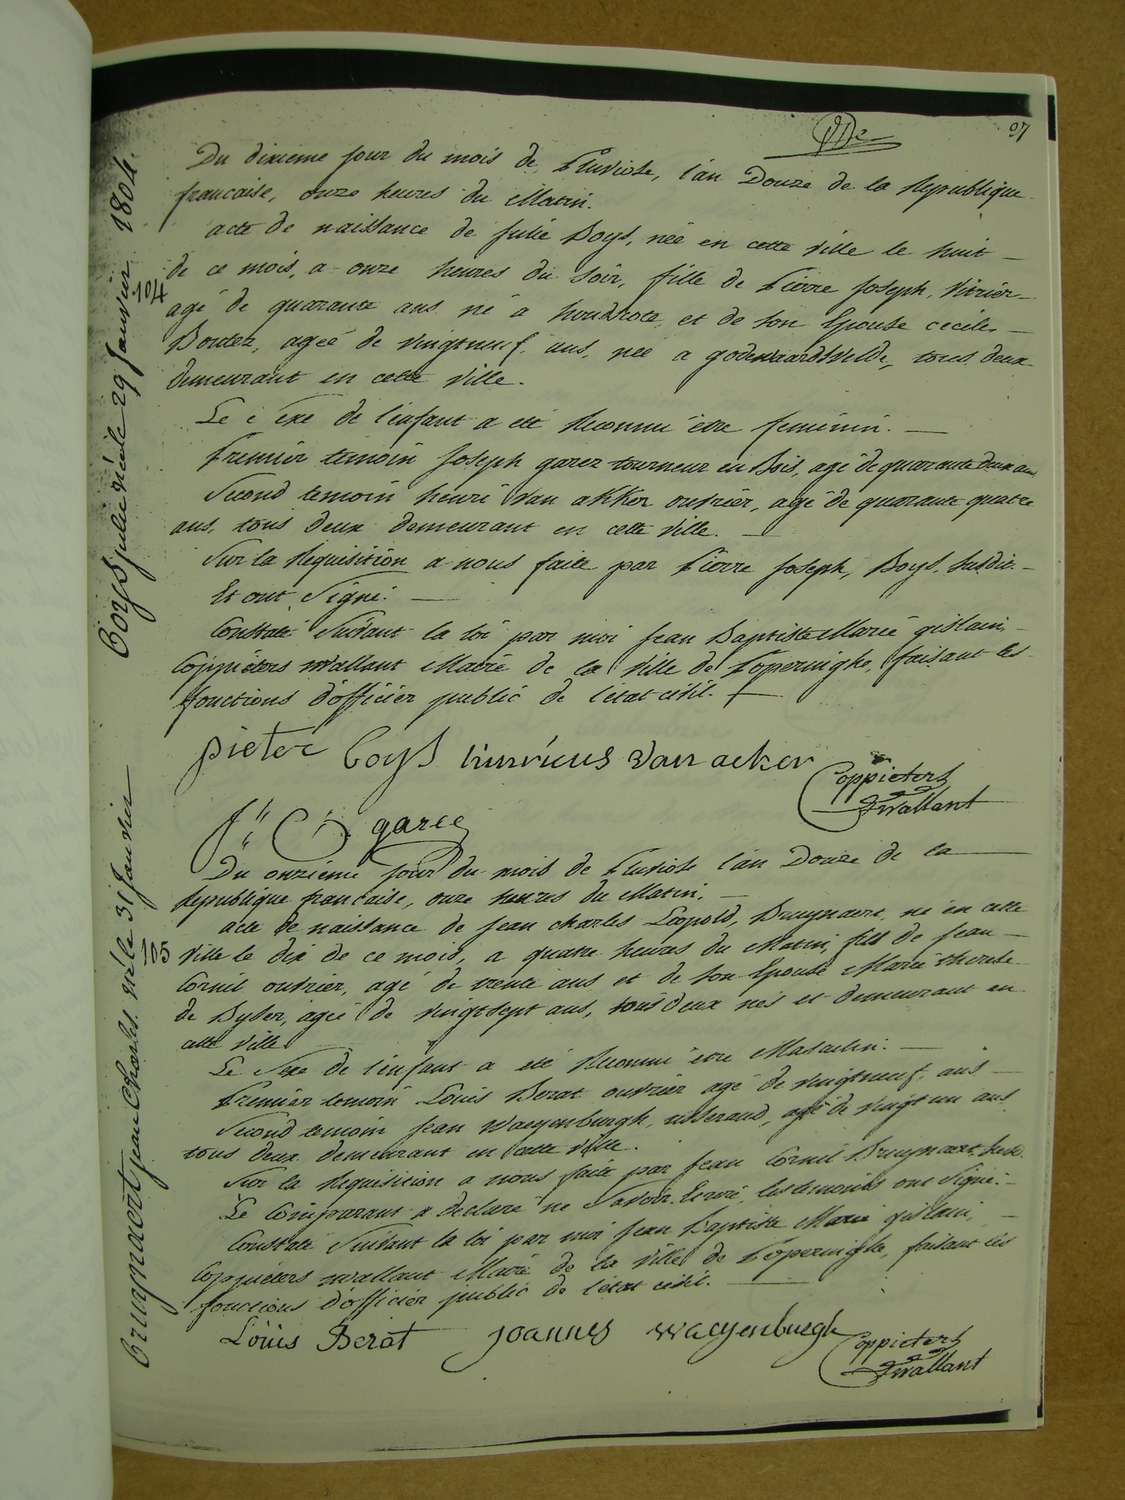 97
Du dixieme jour du mois de Pluviose, l'an Douze de la Republique
francaise, onze heures du Matin.
acte de naissance de Julie Boys, née en cette ville le huit
de ce mois, a onze heures du soir, fille de Pierre Joseph, vitrier
agé de quarante ans né a hondscote et de son Epouse cecile
Boutez, ageé de vingtneuf ans, née a godewaardsvelde, tous deux
demeurant en cette ville.
Le Sexe de l'enfant a eté Reconnu être feminin.
Premier temoin Joseph garez tourneur en Bois, agé de quarante deux ans
Second temoin henri Van akker ouvrier, agé de quarante quatre
ans, tous deux demeurant en cette ville.
Sur la Requisition a nous faite par Pierre Joseph, Boys, susdit.
Et ont Signé.
Constaté Suivant la loi par moi Jean Baptiste Marie gislain,
Coppieters wallant Maire de la ville de Poperinghe, faisant les
fonctions d'officier public de l'etat civil.
pieter boys hinricus van acker
Coppieters
wallant
garez
104
Boys julie née le 29 Janvier 1804.
Du onzieme jour du mois de Pluviose l'an Douze de la
Republique francaise, onze heures du Matin,
acte de naissance de jean charles Leopold, Bruynaert, né en cette
ville le dix de ce mois, a quatre heures du Matin, fils de jean
Cornil ouvrier, agé de trente ans et de son Epouse Marie therese
de Byser, ageé de vingtsept ans, tous deux nés et demeurant en
cette ville
Le Sexe de l'enfant a eté Reconnu être Masculin.
Premier temoin Louis Berat ouvrier agé de vingtneuf ans
Second temoin Jean Waeyenburgh, agé de vingt un ans
tous deux demeurant en cette ville.
Sur la Requisition a nous faite par Jean Cornil Bruynaert, susd.
Le Comparant a declaré ne Savoir Ecrire, les temoins ont Signé.
Constaté Suivant la loi par moi Jean Baptiste Marie gislain,
Coppieters wallant Maire de la ville de Poperinghe, faisant les
fonctions d'officier public de l'etat civil.
Louis Berat joannes waeyenburgh
Coppieters
wallant
105
bruynaert jean Charles né le 31 Janvier